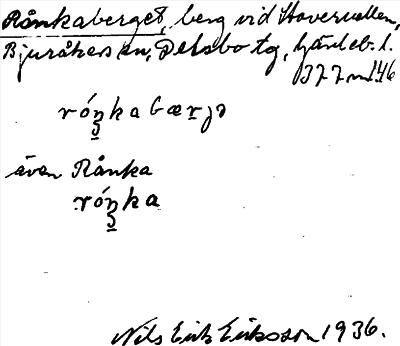 Rånkaberget, berg vid Stoversvallen,
Bjuråkers sn, Delsbo tg, Gävleb. l.
377 m 146
róŋkabærjə
även Rånka
róŋka
Nils Erik Eriksson 1936.